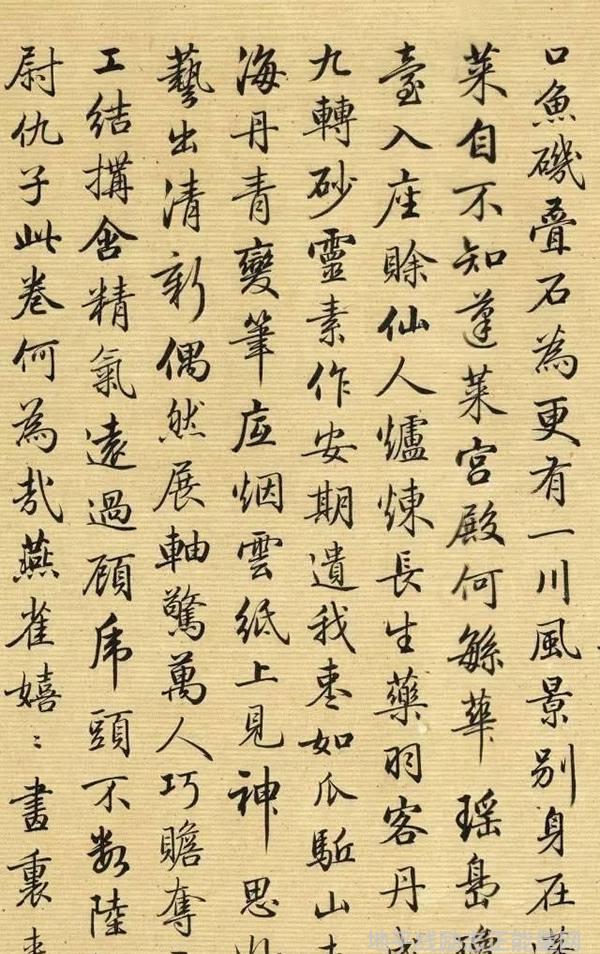 口魚磯疊石為更有一川風景别身在蓬
萊自不知蓬萊宮殿何繁華瑤島瓊
臺入座賒仙人爐煉長生藥羽客丹成
九轉砂靈素作安期遺我棗如瓜駈山
海丹青變筆底烟雲紙上見神思
藝出清新偶然展軸驚萬人巧贍奪
工結構含精氣遠過顧虎頭不數陸
尉仇子此卷何為哉燕雀嬉〻畫裏